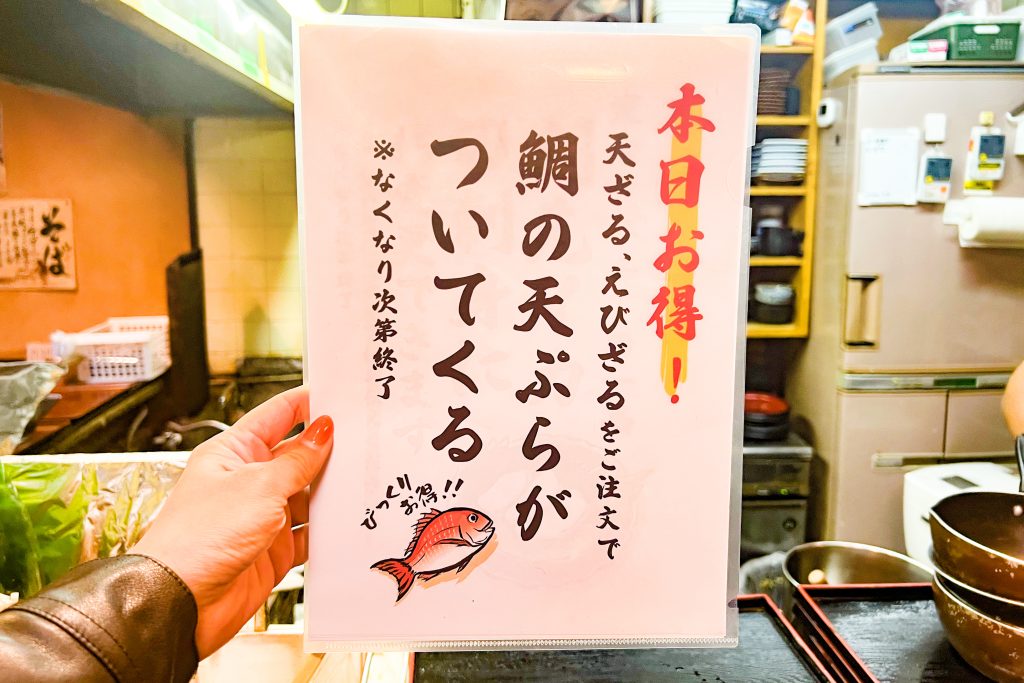 本日お得!
天ざる、えびざるをご注文で
鯛の天ぷらが
ついてくる
※なくなり次第終了
びっくり
お得!!
そば